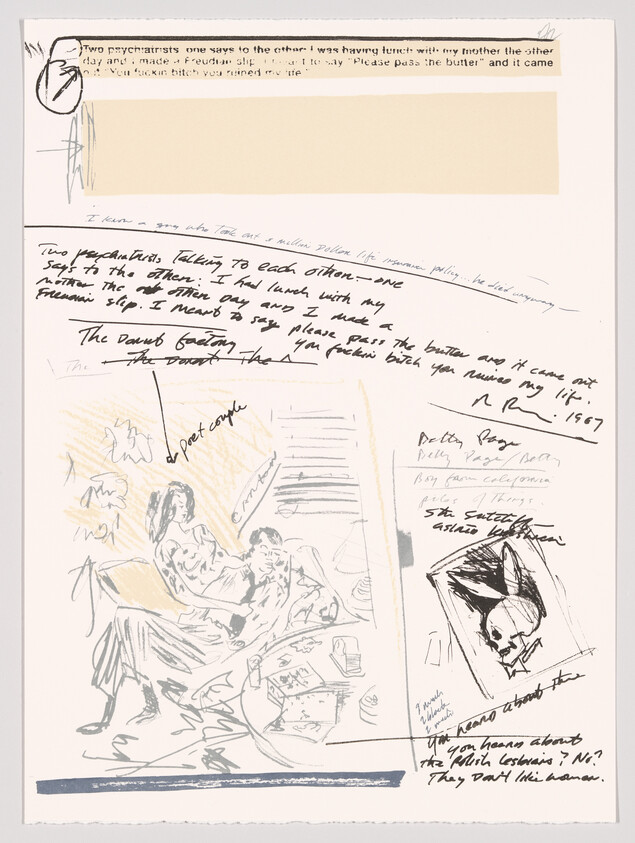 Two psychiatrists, one says to the other: I was having lunch with my mother the other
day and I made a Freudian slip. I meant to say "Please pass the butter" and it came
out "You fuckin bitch you ruined my life."
I know a guy who took out a million Dollar life insurance policy — he died anyway —
Two psychiatrists talking to each other — one
says to the other: I had lunch with my
mother the other day and I made a
Freudian slip. I meant to say please pass the butter and it came out
you fuckin bitch you ruined my life.
1987
The Donut factory
The Donut The
The
a poet couple
Betty Page
Betty Page / Betty
Boy from California
Stu Sutcliffe
You heard about the
you heard about
the Polish lesbians? No?
They Don't like women.